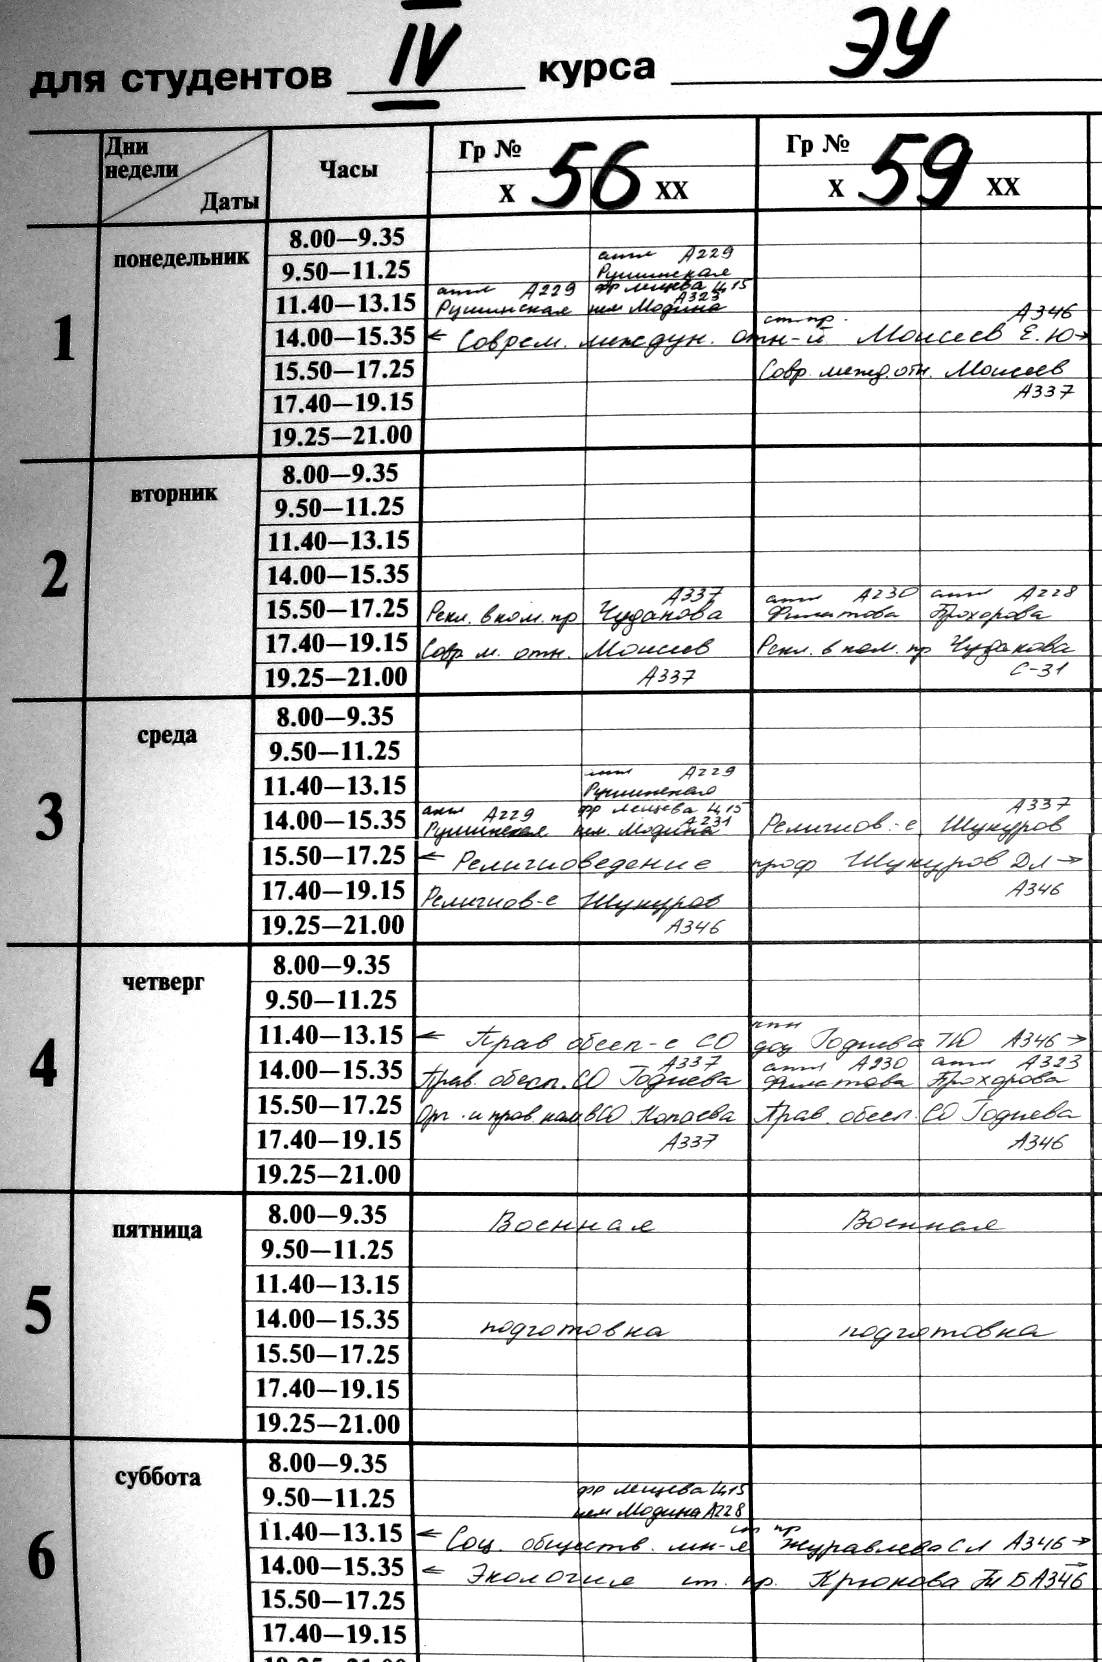 для студентов IV курса ЭУ
Дни недели
Даты
Часы
Гр № 56
X XX
Гр № 59
X XX
1
понедельник
8.00—9.35
9.50—11.25 англ А229 Рушинская
11.40—13.15 англ А229 Рушинская фр Лещева Ц15 нем Модина А323
14.00—15.35 ← Соврем. междун. отн-й ст. пр. Моисеев Е.Ю → А346
15.50—17.25 Совр. межд. отн. Моисеев
17.40—19.15 А337
19.25—21.00
2
вторник
8.00—9.35
9.50—11.25
11.40—13.15
14.00—15.35
15.50—17.25 Рекл. в ком. пр Чуданова А337 англ А230 Филатова англ А228 Прохорова
17.40—19.15 Совр м. отн. Моисеев Рекл. в ком. пр Чуданова
19.25—21.00 А337 С-31
3
среда
8.00—9.35
9.50—11.25
11.40—13.15 англ А229 Рушинская
14.00—15.35 англ А229 Рушинская фр Лещева Ц15 нем. Модина А231 Религиов.-е Шукуров А337
15.50—17.25 ← Религиоведение проф Шукуров Дл →
17.40—19.15 Религиов-е Шукуров А346
19.25—21.00 А346
4
четверг
8.00—9.35
9.50—11.25
11.40—13.15 ← Прав обесп-е СО доц Годнева ТЮ А346 →
14.00—15.35 Прав. обесп. СО Годнева А337 англ А230 Филатова англ А323 Прохорова
15.50—17.25 Орг. и прав. ком в СО Копаева Прав. обесп. СО Годнева
17.40—19.15 А337 А346
19.25—21.00
5
пятница
8.00—9.35 Военная Военная
9.50—11.25
11.40—13.15
14.00—15.35 подготовка подготовка
15.50—17.25
17.40—19.15
19.25—21.00
6
суббота
8.00—9.35
9.50—11.25 фр Лещева Ц15 нем Модина А228
11.40—13.15 ← Соц. обществ. мн-я ст пр Журавлева СЛ А346 →
14.00—15.35 ← Экология ст. пр. Крюкова Т Б А346 →
15.50—17.25
17.40—19.15
19.25—21.00